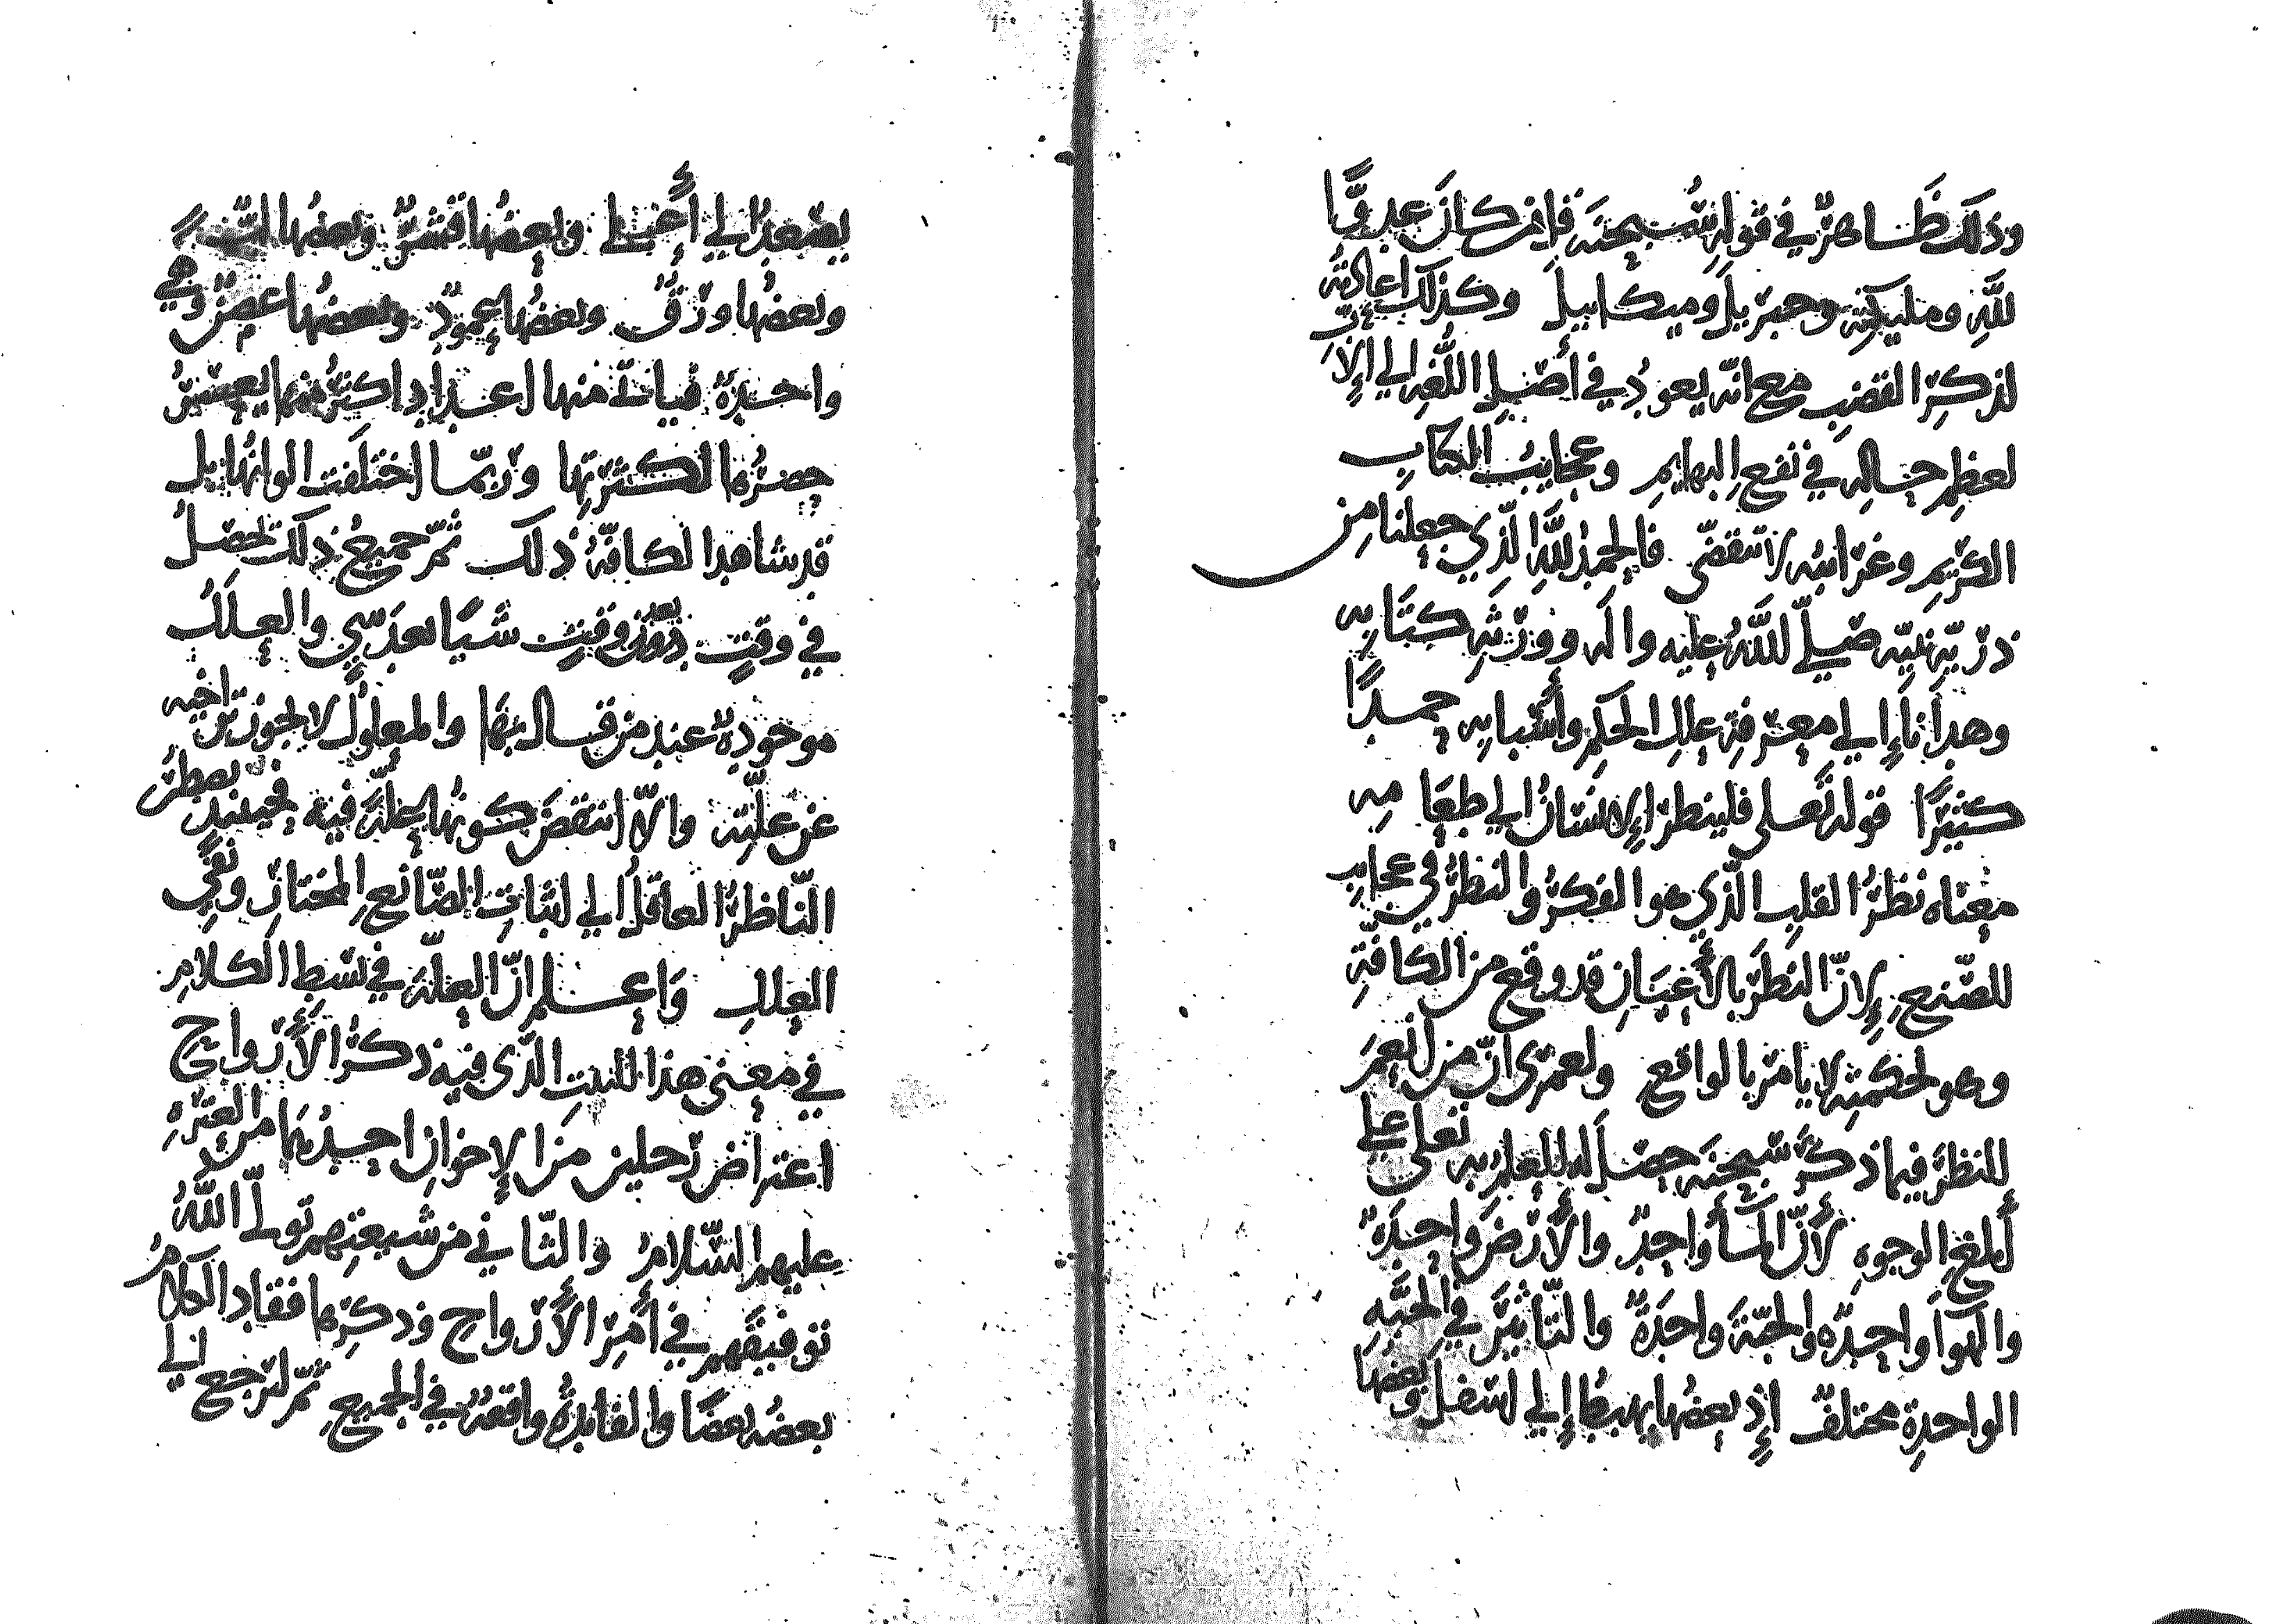 وذلك ظاهرٌ في قوله سبحنه فان كان عدوًّا
لله ومليكته وجبريل وميكاييل وكذلك اعادته
لذكر القضب مع انه يعود في أصل اللغه الى الأبّ
لعظم حاله في نفع البهايم وعجايب الكتاب
الكريم وغرائبه لا تنقضي فالحمد لله الذي جعلنا من
ذرية نبيّه صلى الله عليه واله وورثه كتابه
وهدانا إلى معرفة علل الحكم وأسبابه حمدًا
كثيرًا قوله تعلى فلينظر الإنسان الى طعامه
معناه نظر القلب الذي هو الفكر والنظر في عجايب
الصّنع لأنّ النظر بالأعيان قد وقع من الكافّة
وهو لحكمته لا يامر بالواقع ولعمري انّ من أنعم
النظر فيما ذكر سبحنه حصل له العلم به تعلى على
أبلغ الوجوه لأنّ المآء واحدٌ والأرض واحدةٌ
والهوآ واحدة والحبّة واحدةٌ والتّأثير في الحبّه
الواحدة مختلفٌ إذ بعضها يهبط إلى اسفل وبعضها
يصعد الى أعلى وبعضها قشرٌ وبعضها لبّ
وبعضها ورقٌ وبعضها عمودٌ وبعضها غصنٌ وهي
واحدة فياتي منها اعداد اكثر منها يعسر
حصرها لكثرتها وربّما اختلفت الوانها بل
قد شاهد الكافّة ذلك ثمّ جميع ذلك يحصل
في وقتٍ دون وقتٍ شيًا بعد شي والعلل
موجودة عند من قال بها والمعلول لا يجوز تراخيه
عن علّته والاّ انتقض كونها علّة فيه فحينيذ يضطر
النّاظر العاقل الى اثبات الصّانع المختار ونفي
العلل واعلم انّ العلّة في بسط الكلام
في معنى هذا البيت الذي فيه ذكر الأزواج
اعتراض رجلين من الإخوان احدهما من العترة
عليهم السّلام والثّاني من شيعتهم تولّى الله
توفيقهم في أمر الأزواج وذكرها فقاد الكلام
بعضه بعضًا والفايدة واقعة في الجميع ثمّ لنرجع الى